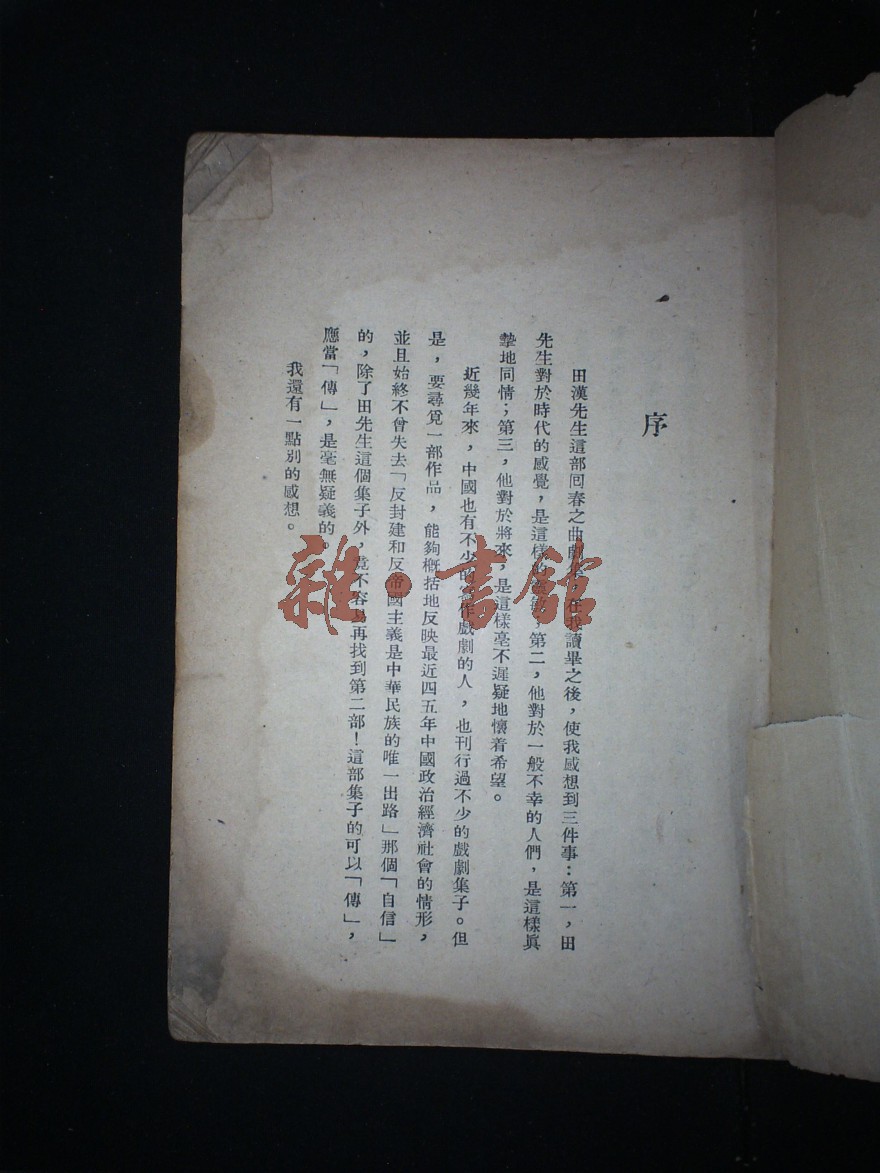 序
田漢先生這部回春之曲劇集，在我讀畢之後，使我感想到三件事：第一，田
先生對於時代的感覺，是這樣的；第二，他對於一般不幸的人們，是這樣眞
摯地同情；第三，他對於將來，是這樣毫不遲疑地懷着希望。
近幾年來，中國也有不少的寫作戲劇的人，也刊行過不少的戲劇集子。但
是，要尋覓一部作品，能夠槪括地反映最近四五年中國政治經濟社會的情形，
並且始終不曾失去「反封建和反帝國主義是中華民族的唯一出路」那個「自信」
的，除了田先生這個集子外，竟不容易再找到第二部！這部集子的可以「傳」，
應當「傳」，是毫無疑義的。
我還有一點別的感想。
雜·書館